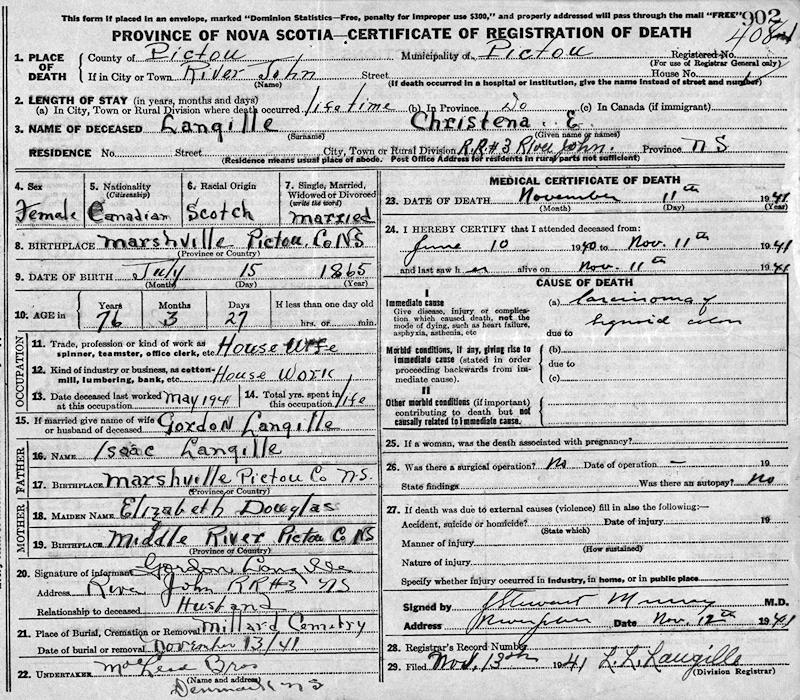 This form if placed in an envelope, marked "Dominion Statistics—Free, penalty for improper use $300," and properly addressed will pass through the mail "FREE" 902
PROVINCE OF NOVA SCOTIA—CERTIFICATE OF REGISTRATION OF DEATH 408
1. PLACE OF DEATH County of Pictou Municipality of Pictou Registered No.
(For use of Registrar General only)
If in City or Town River John Street House No.
(Name) (If death occurred in a hospital or institution, give the name instead of street and number)
2. LENGTH OF STAY (in years, months and days)
(a) In City, Town or Rural Division where death occurred lifetime (b) In Province Do (c) In Canada (if immigrant)
3. NAME OF DECEASED Langille Christena E.
(Surname) (Given name or names)
RESIDENCE No. Street City, Town or Rural Division R.R#3 River John. Province N S
(Residence means usual place of abode. Post Office Address for residents in rural parts not sufficient)
4. Sex Female
5. Nationality (Citizenship) Canadian
6. Racial Origin Scotch
7. Single, Married, Widowed or Divorced (write the word) married
8. BIRTHPLACE Marshville Pictou Co NS
(Province or Country)
9. DATE OF BIRTH July 15 1865
(Month) (Day) (Year)
10. AGE in Years 76 Months 3 Days 27 If less than one day old
hrs. or min.
OCCUPATION
11. Trade, profession or kind of work as spinner, teamster, office clerk, etc. House Wife
12. Kind of industry or business, as cotton-mill, lumbering, bank, etc. House Work
13. Date deceased last worked at this occupation May 1941 14. Total yrs. spent in this occupation life
15. If married give name of wife or husband of deceased Gordon Langille
FATHER
16. NAME Isaac Langille
17. BIRTHPLACE Marshville Pictou Co N.S.
(Province or Country)
MOTHER
18. MAIDEN NAME Elizabeth Douglas
19. BIRTHPLACE Middle River Pictou Co NS
(Province or Country)
20. Signature of informant Gordon Langille
Address River John RR#3 NS
Relationship to deceased Husband
21. Place of Burial, Cremation or Removal Millard Cemetry
Date of burial or removal November 13/41
22. UNDERTAKER McLeod Bros
(Name and address)
Denmark NS
MEDICAL CERTIFICATE OF DEATH
23. DATE OF DEATH November 11th 1941
(Month) (Day) (Year)
24. I HEREBY CERTIFY that I attended deceased from:
June 10 1940 to Nov. 11th 1941
and last saw her alive on Nov. 11th 1941
CAUSE OF DEATH
I
Immediate cause (a) Carcinoma of
Give disease, injury or complication which caused death, not the mode of dying, such as heart failure, asphyxia, asthenia, etc
sigmoid colon
due to
Morbid conditions, if any, giving rise to immediate cause (stated in order proceeding backwards from immediate cause).
(b)
due to
(c)
II
Other morbid conditions (if important) contributing to death but not causally related to immediate cause.
25. If a woman, was the death associated with pregnancy?
26. Was there a surgical operation? No Date of operation – 19
State findings Was there an autopsy? No
27. If death was due to external causes (violence) fill in also the following:—
Accident, suicide or homicide? Date of injury 19
(State which)
Manner of injury
(How sustained)
Nature of injury
Specify whether injury occurred in industry, in home, or in public place
Signed by J Stewart Murray M.D.
Address Date Nov. 12th 1941
28. Registrar's Record Number
29. Filed Nov. 13th 1941 L. L. Langille
(Division Registrar)